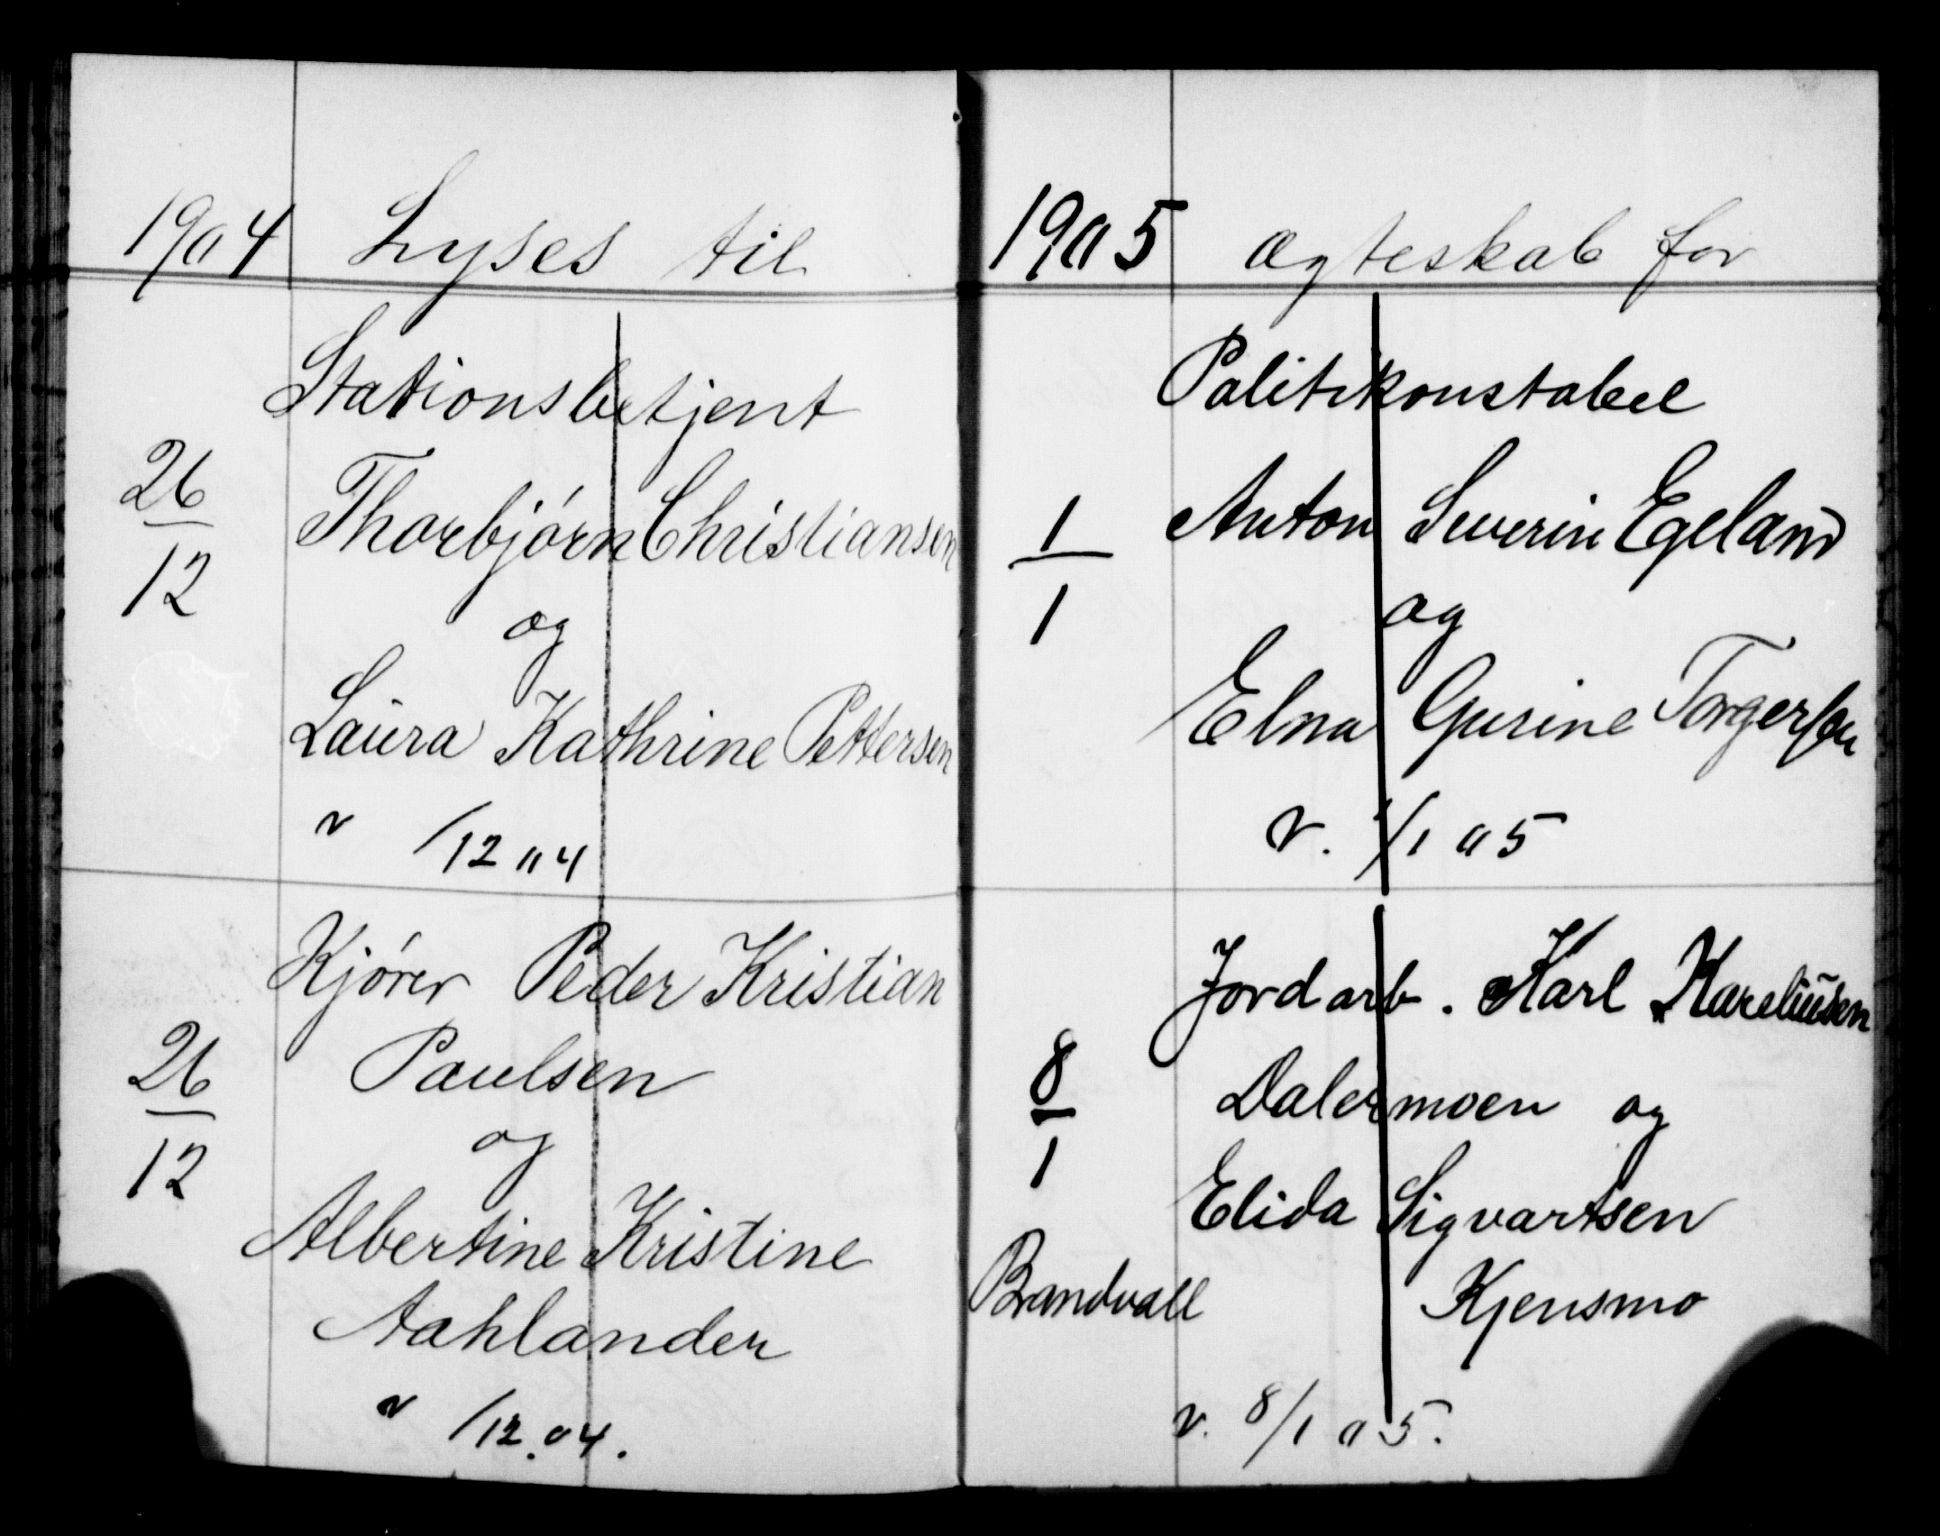 1904 Lyses til
Stationsbetjent
26/12 Thorbjörn Christiansen
og
Laura Kathrine Pettersen
v /12 04
Kjörer Peder Kristian
26/12 Paulsen
og
Albertine Kristine
Aahlander
v /12.04.
1905 Ægteskab for
Politikonstabel
1/1 Anton Severin Egeland
og
Elna Gurine Torgersen
v. 1/1 05
Jordarb. Karl Kareliusen
8/1 Dalermoen og
Elida Sigvartsen
Brandvall Kjensmo
v. 8/1 05.